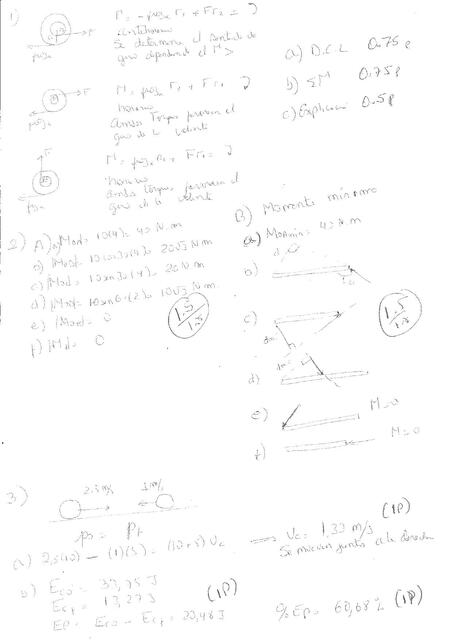 1)
M = -peso r1 + F r2 =
antihorario
Se determina el sentido de
giro dependiendo del M >
a) D.C.L 0.75p
b) ΣM 0.75p
c) Explicación 0.5p
F
peso
M = peso r1 + F r2
horario
Ambos torques favorecen el
giro de la volante
F
peso
M = peso r1 + F r2 =
horario
ambos torques favorecen el
giro de la volante
F
peso
2) A) a) |Mo| = 10(4) = 40 N.m
b) |Mo| = 10 cos30(4) = 20√3 N.m
c) |Mo| = 10 sen30(4) = 20 N.m
d) |Mo| = 10 sen60(2) = 10√3 N.m
e) |Mo| = 0
f) |Mo| = 0
1.5/1.5
B) Momento mínimo
a) Momin = 40 N.m
b)
c)
d)
e) M = 0
f) M = 0
1.5/1.5
3)
2.5 m/s 1 m/s
po = pf
a) 2,5(10) - (1)(5) = (10+5) Vc
⟹ Vc = 1,33 m/s (1P)
Se mueven juntos a la derecha
b) Eco = 33,75 J
Ecf = 13,27 J (1P)
EP = Eco - Ecf = 20,48 J
%Ep = 60,68% (1P)